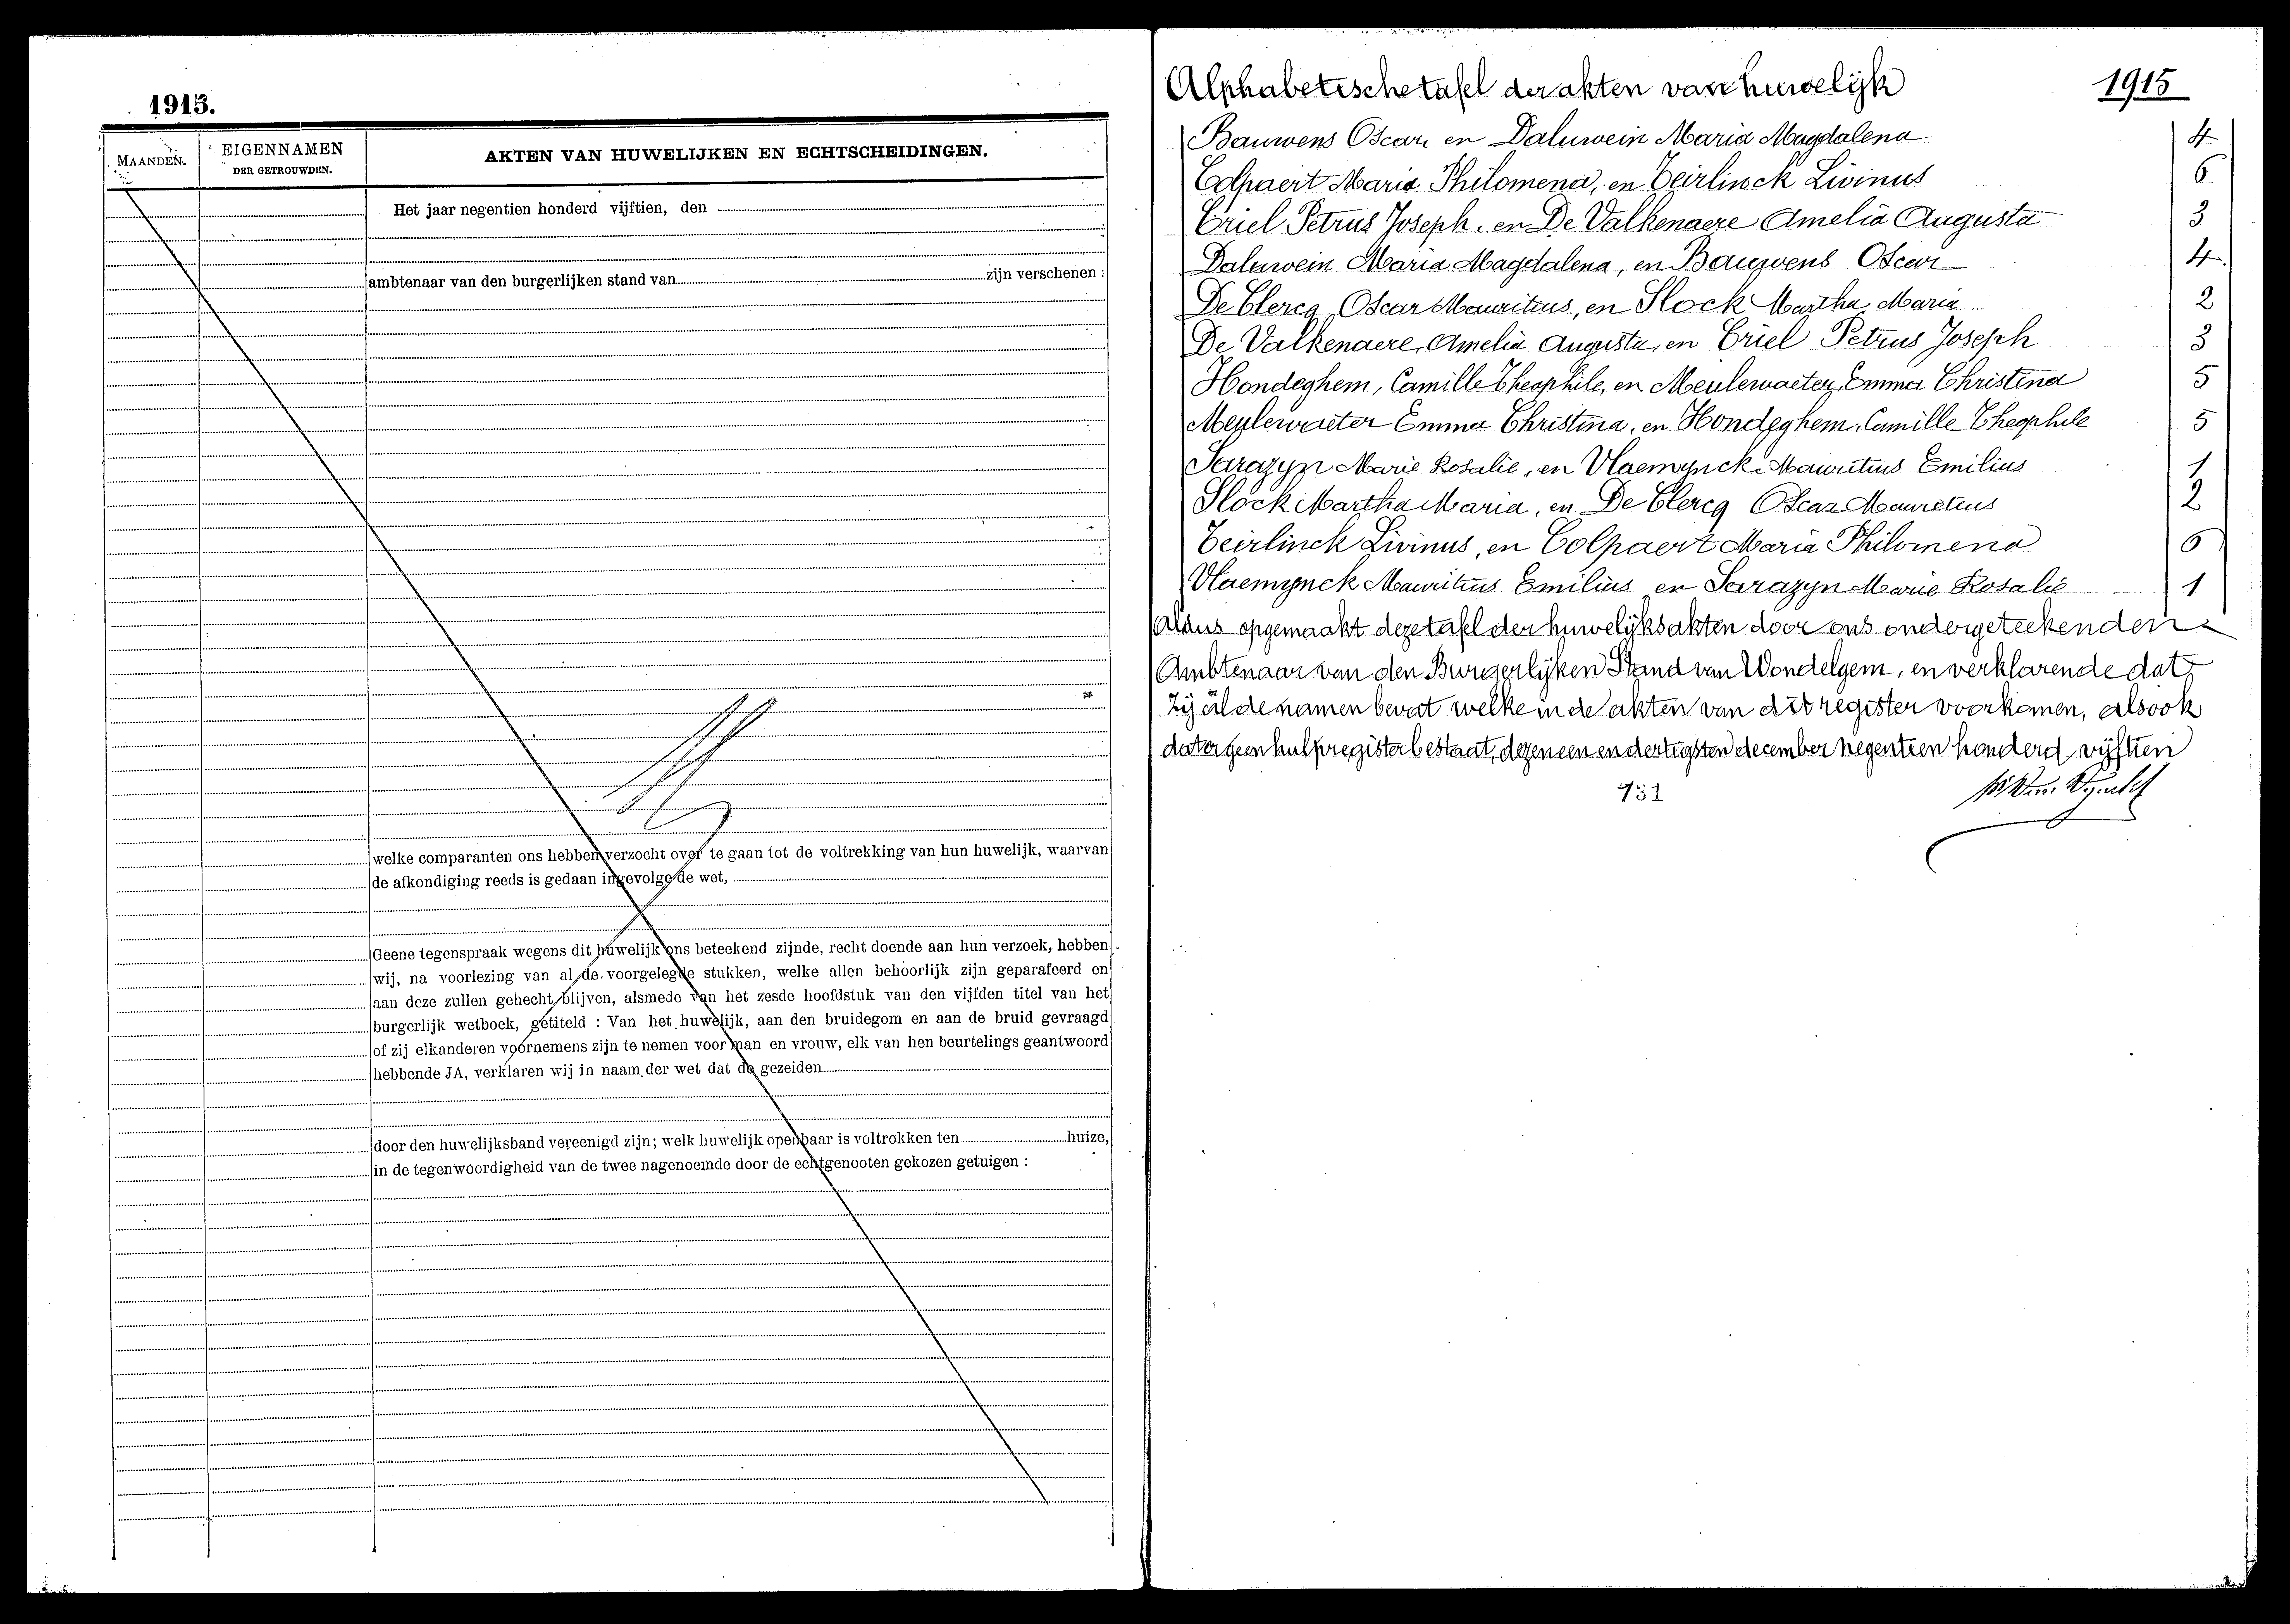 1915.
MAANDEN.
EIGENNAMEN
DER GETROUWDEN.
AKTEN VAN HUWELIJKEN EN ECHTSCHEIDINGEN.
Het jaar negentien honderd vijftien, den
ambtenaar van den burgerlijken stand van zijn verschenen :
welke comparanten ons hebben verzocht over te gaan tot de voltrekking van hun huwelijk, waarvan
de afkondiging reeds is gedaan ingevolge de wet,
Geene tegenspraak wegens dit huwelijk ons beteekend zijnde, recht doende aan hun verzoek, hebben
wij, na voorlezing van al de voorgelegde stukken, welke allen behoorlijk zijn geparafeerd en
aan deze zullen gehecht blijven, alsmede van het zesde hoofdstuk van den vijfden titel van het
burgerlijk wetboek, getiteld : Van het huwelijk, aan den bruidegom en aan de bruid gevraagd
of zij elkanderen voornemens zijn te nemen voor man en vrouw, elk van hen beurtelings geantwoord
hebbende JA, verklaren wij in naam der wet dat de gezeiden
door den huwelijksband vereenigd zijn; welk huwelijk openbaar is voltrokken ten huize,
in de tegenwoordigheid van de twee nagenoemde door de echtgenooten gekozen getuigen :
Alphabetische tafel der akten van huwelijk 1915
Bauwens Oscar en Daluwein Maria Magdalena 4
Colpaert Maria Philomena, en Teirlinck Livinus 6
Criel Petrus Joseph, en De Valkenaere Amelia Augusta 3
Daluwein Maria Magdalena, en Bauwens Oscar 4
De Clercq Oscar Mauritius, en Slock Martha Maria 2
De Valkenaere Amelia Augusta, en Criel Petrus Joseph 3
Hondeghem, Camille Theophile, en Meulewaeter, Emma Christina 5
Meulewaeter Emma Christina, en Hondeghem, Camille Theophile 5
Sarazyn Marie Rosalie, en Vlaemynck Mauritius Emilius 1
Slock Martha Maria, en De Clercq Oscar Mauritius 2
Teirlinck Livinus, en Colpaert Maria Philomena 6
Vlaemynck Mauritius Emilius en Sarazyn Marie Rosalie 1
Aldus opgemaakt deze tafel der huwelijksakten door ons ondergeteekenden
Ambtenaar van den Burgerlijken Stand van Wondelgem, en verklarende dat
zij al de namen bevat welke in de akten van dit register voorkomen, alsook
dat er geen hulpregister bestaat, dezen een en dertigsten december negentien honderd vijftien